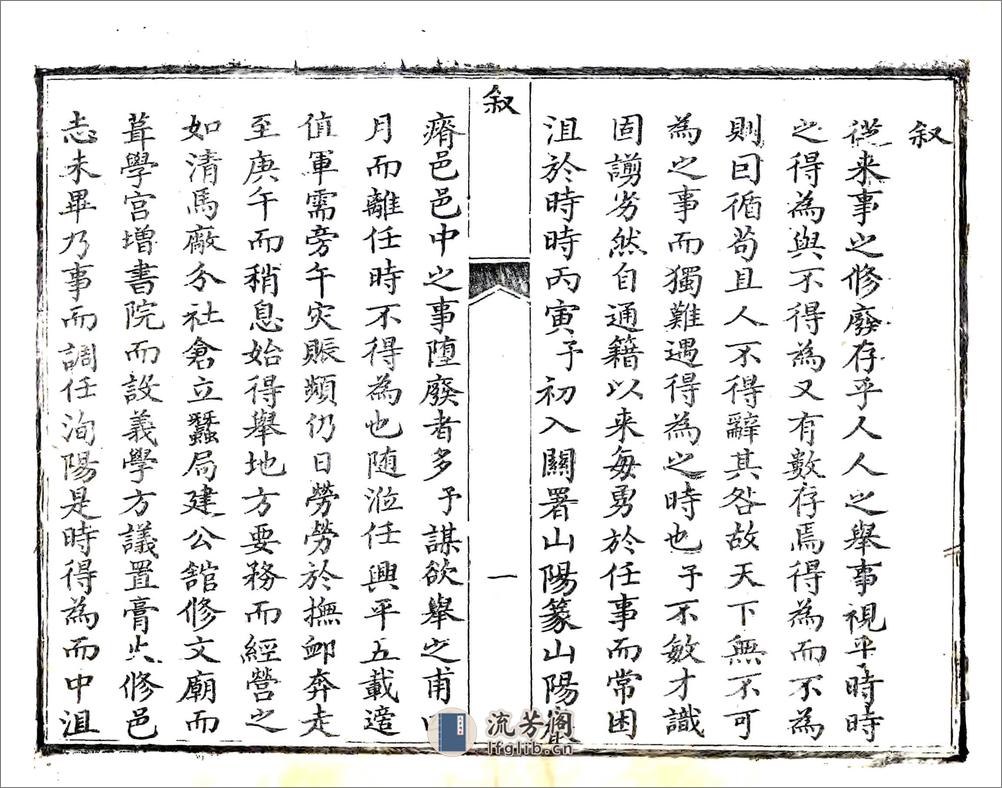 叙
從来事之修廢存乎人人之舉事視乎時時
之得為與不得為又有數存焉得為而不為
則因循苟且人不得辭其咎故天下無不可
為之事而獨難遇得為之時也予不敏才識
固謭劣然自通籍以来每勇於任事而常困
沮於時時丙寅予初入關署山陽篆山陽
叙
一
瘠邑邑中之事堕廢者多予謀欲舉之甫
月而離任時不得為也随涖任興平五載適
值軍需旁午灾賑頻仍日勞勞於撫䘏奔走
至庚午而稍息始得舉地方要務而經營之
如清馬廠分社倉立蠶局建公舘修文廟而
葺學宫增書院而設義學方議置膏火修邑
志未畢乃事而調任洵陽是時得為而中沮
流芳阁
lfglib.cn